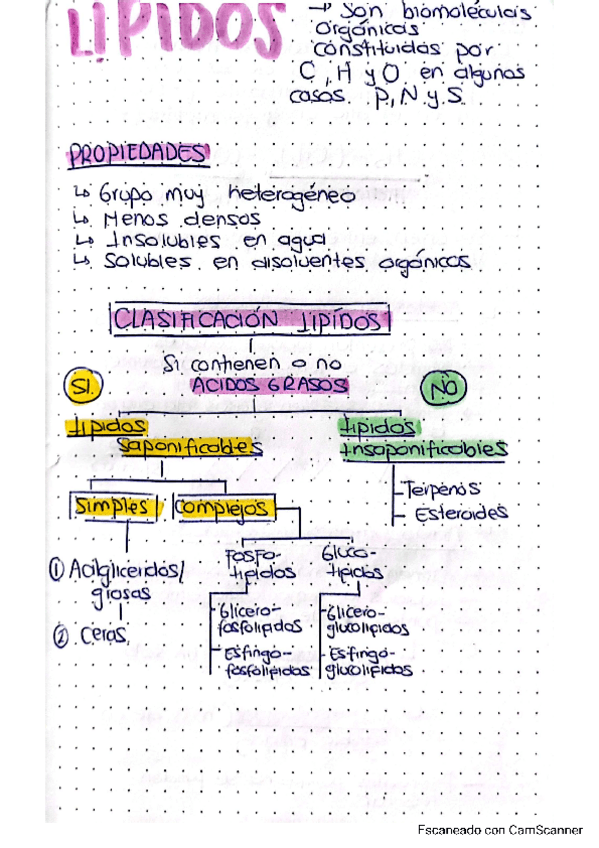 LÍPIDOS
→ Son biomoléculas
orgánicas
constituidas por
C, H y O en algunos
casos P, N y S.
PROPIEDADES
↳ Grupo muy heterogéneo
↳ Menos densos
↳ Insolubles en agua
↳ Solubles en disolventes orgánicos
CLASIFICACIÓN LIPÍDOS
Si contienen o no
SI.
ACIDOS GRASOS
NO
Lipidos
saponificables
Lipidos
Insaponificables
Simples
Complejos
Terpenos
Esteroides
① Acilgliceridos/
grasas
② Ceras.
Fosfo-
lipidos
Gluco-
lipidos
Glicero-
fosfolipidos
Esfingo-
fosfolipidos
Glicero-
glucolipidos
Esfingo-
glucolipidos
Escaneado con CamScanner